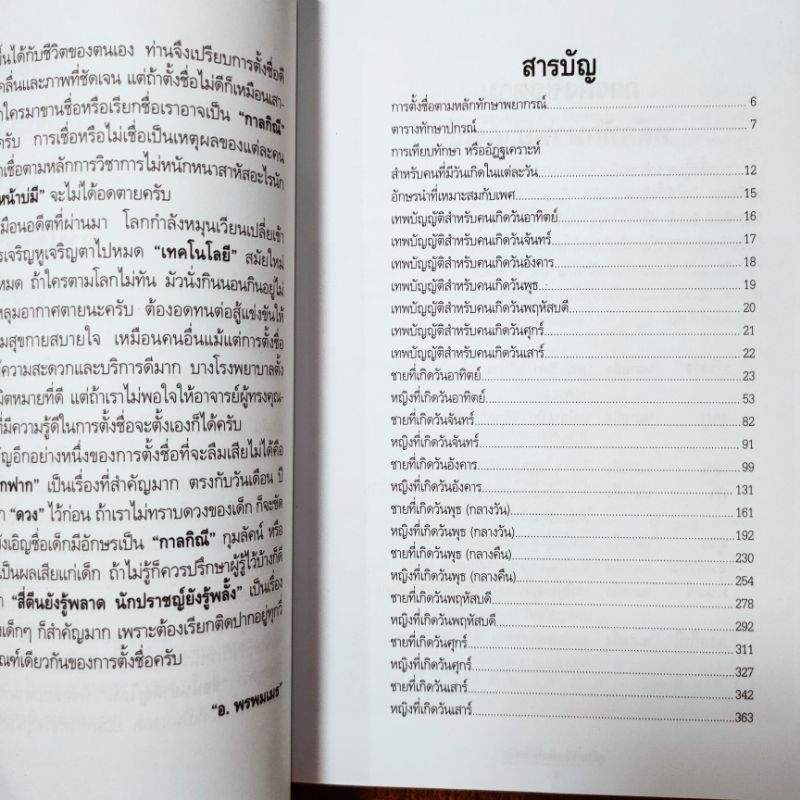 ขึ้นได้กับชีวิตของตนเอง ท่านจึงเปรียบการตั้งชื่อดี
คลื่นและภาพที่ชัดเจน แต่ถ้าตั้งชื่อไม่ดีก็เหมือนเสา-
าใครมาขานชื่อหรือเรียกชื่อเราอาจเป็น “กาลกิณี”
ครับ การเชื่อหรือไม่เชื่อเป็นเหตุผลของแต่ละคน
เชื่อตามหลักการวิชาการไม่หนักหนาสาหัสอะไรนัก
หน้าบ่มี” จะไม่ได้อดตายครับ
มือนอดีตที่ผ่านมา โลกกำลังหมุนเวียนเปลี่ยเข้า
รเจริญหูเจริญตาไปหมด “เทคโนโลยี” สมัยใหม่
หมด ถ้าใครตามโลกไม่ทัน มัวนั่งกินนอนกินอยู่ไม่
หลุมอากาศตายนะครับ ต้องอดทนต่อสู้แข่งขันให้
มสุขกายสบายใจ เหมือนคนอื่นแม้แต่การตั้งชื่อ
ห้ความสะดวกและบริการดีมาก บางโรงพยาบาลตั้ง
มิตหมายที่ดี แต่ถ้าเราไม่พอใจให้อาจารย์ผู้ทรงคุณ-
ที่มีความรู้ดีในการตั้งชื่อจะตั้งเองก็ได้ครับ
ัญอีกอย่างหนึ่งของการตั้งชื่อที่จะลืมเสียไม่ได้คือ
กฟาก” เป็นเรื่องที่สำคัญมาก ตรงกับวันเดือน ปี
า “ดวง” ไว้ก่อน ถ้าเราไม่ทราบดวงของเด็ก ก็จะขัด
ังเอิญชื่อเด็กมีอักษรเป็น “กาลกิณี” กุมลัคน์ หรือ
เป็นผลเสียแก่เด็ก ถ้าไม่รู้ก็ควรปรึกษาผู้รู้ไว้บ้างก็ดี
า “สี่ตีนยังรู้พลาด นักปราชญ์ยังรู้พลั้ง” เป็นเรื่อง
งเด็กๆ ก็สำคัญมาก เพราะต้องเรียกติดปากอยู่ทุกวี่
ณฑ์เดียวกันของการตั้งชื่อครับ
“อ. พรพมเมธ”
สารบัญ
การตั้งชื่อตามหลักทักษาพยากรณ์ 6
ตารางทักษาปกรณ์ 7
การเทียบทักษา หรืออัฏฐเคราะห์
สำหรับคนที่มีวันเกิดในแต่ละวัน 12
อักษรนำที่เหมาะสมกับเพศ 15
เทพบัญญัติสำหรับคนเกิดวันอาทิตย์ 16
เทพบัญญัติสำหรับคนเกิดวันจันทร์ 17
เทพบัญญัติสำหรับคนเกิดวันอังคาร 18
เทพบัญญัติสำหรับคนเกิดวันพุธ 19
เทพบัญญัติสำหรับคนเกิดวันพฤหัสบดี 20
เทพบัญญัติสำหรับคนเกิดวันศุกร์ 21
เทพบัญญัติสำหรับคนเกิดวันเสาร์ 22
ชายที่เกิดวันอาทิตย์ 23
หญิงที่เกิดวันอาทิตย์ 53
ชายที่เกิดวันจันทร์ 82
หญิงที่เกิดวันจันทร์ 91
ชายที่เกิดวันอังคาร 99
หญิงที่เกิดวันอังคาร 131
ชายที่เกิดวันพุธ (กลางวัน) 161
หญิงที่เกิดวันพุธ (กลางวัน) 192
ชายที่เกิดวันพุธ (กลางคืน) 230
หญิงที่เกิดวันพุธ (กลางคืน) 254
ชายที่เกิดวันพฤหัสบดี 278
หญิงที่เกิดวันพฤหัสบดี 292
ชายที่เกิดวันศุกร์ 311
หญิงที่เกิดวันศุกร์ 327
ชายที่เกิดวันเสาร์ 342
หญิงที่เกิดวันเสาร์ 363